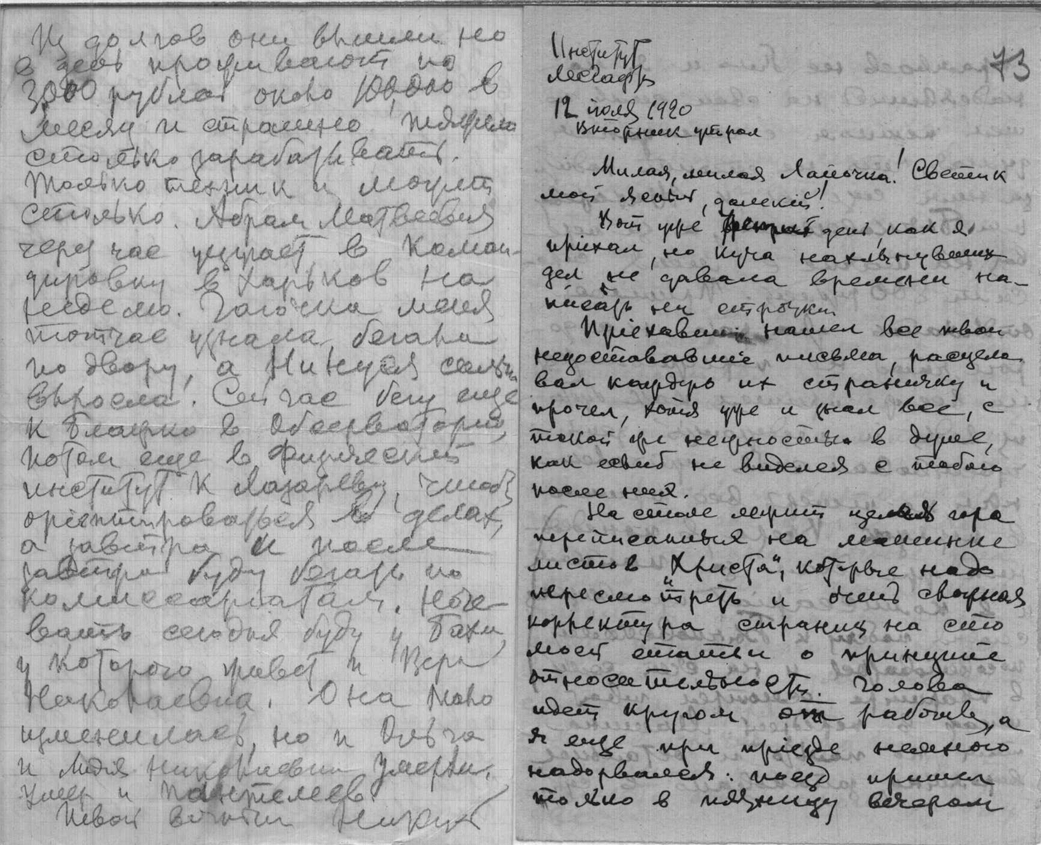 Из долгов они вышли но
в день проживают по
3000 рублей около 100,000 в
месяц и страшно тяжело
столько зарабатывать.
Только техник и могут
столько. Абрам Матвеевич
через час уезжает в Коман-
дировку в Харьков на
неделю. Галочка меня
тотчас узнала, бегала
по двору, а Нинуся
выросла. Сейчас бегу еще
к Блажко в Обсерваторию,
потом еще в Физический
институт к Лазареву, чтоб
ориентироваться в делах,
а завтра и после
завтра буду бегать по
комиссариатам. Ноче-
вать сегодня буду у Баха,
у которого живет и Вера
Николаевна. Она мало
изменилась, но и Ольга
и Лидя Николаевны умерли.
Умер и Пантелеев.
Твой
73
Институт
Лесгафта
12 июля 1920
Вторник утром
Милая, милая Лялечка! Светик
мой ясный, далекий!
Вот уже день, как я
приехал, но куча нахлынувших
дел не давала времени на-
писать ни строчки.
Приехавши нашел все твои
недостававшие письма, расцело
вал каждую их страничку и
прочел, хотя уже и знал все, с
такой же нежностью в душе,
как если б не виделся с тобою
после них.
На столе лежит целая гора
переписанных на машинке
листов "Христа", которые надо
пересмотреть и очень
корректура страниц на сто
моей статьи о принципе
относительности. Голова
идет кругом от работы, а
я еще при приезде немного
надорвался: поезд пришел
только в пятницу вечером